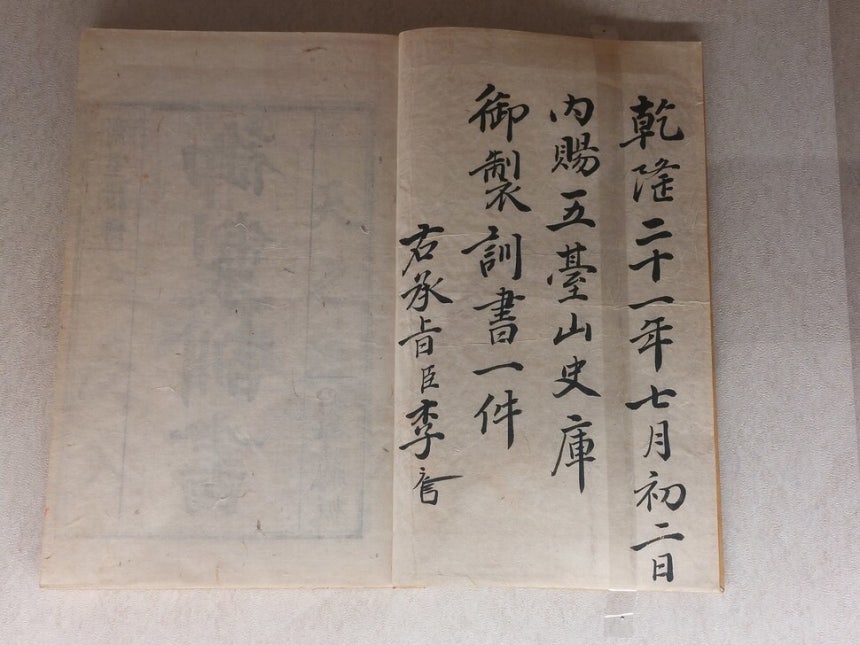 乾隆二十一年七月初二日
内賜五臺山史庫
御製訓書一件
右承旨臣李